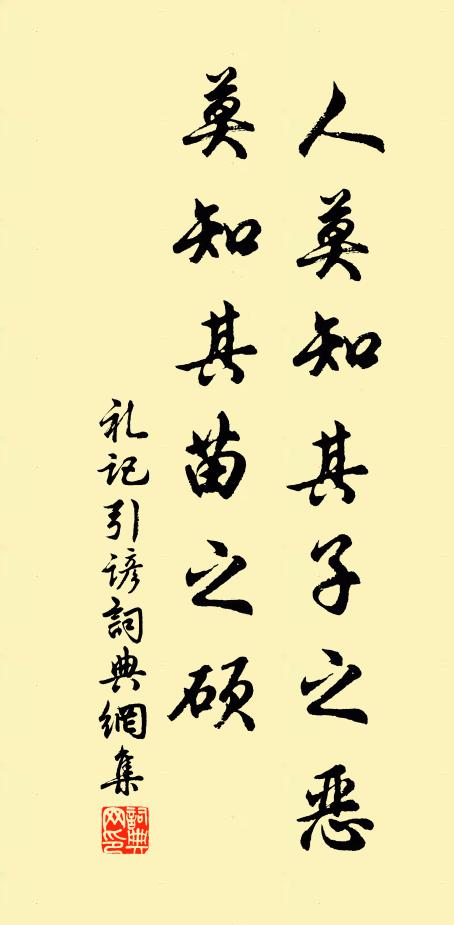 人莫知其子之恶
莫知其苗之硕
礼记引谚詞典網集
詞典网印